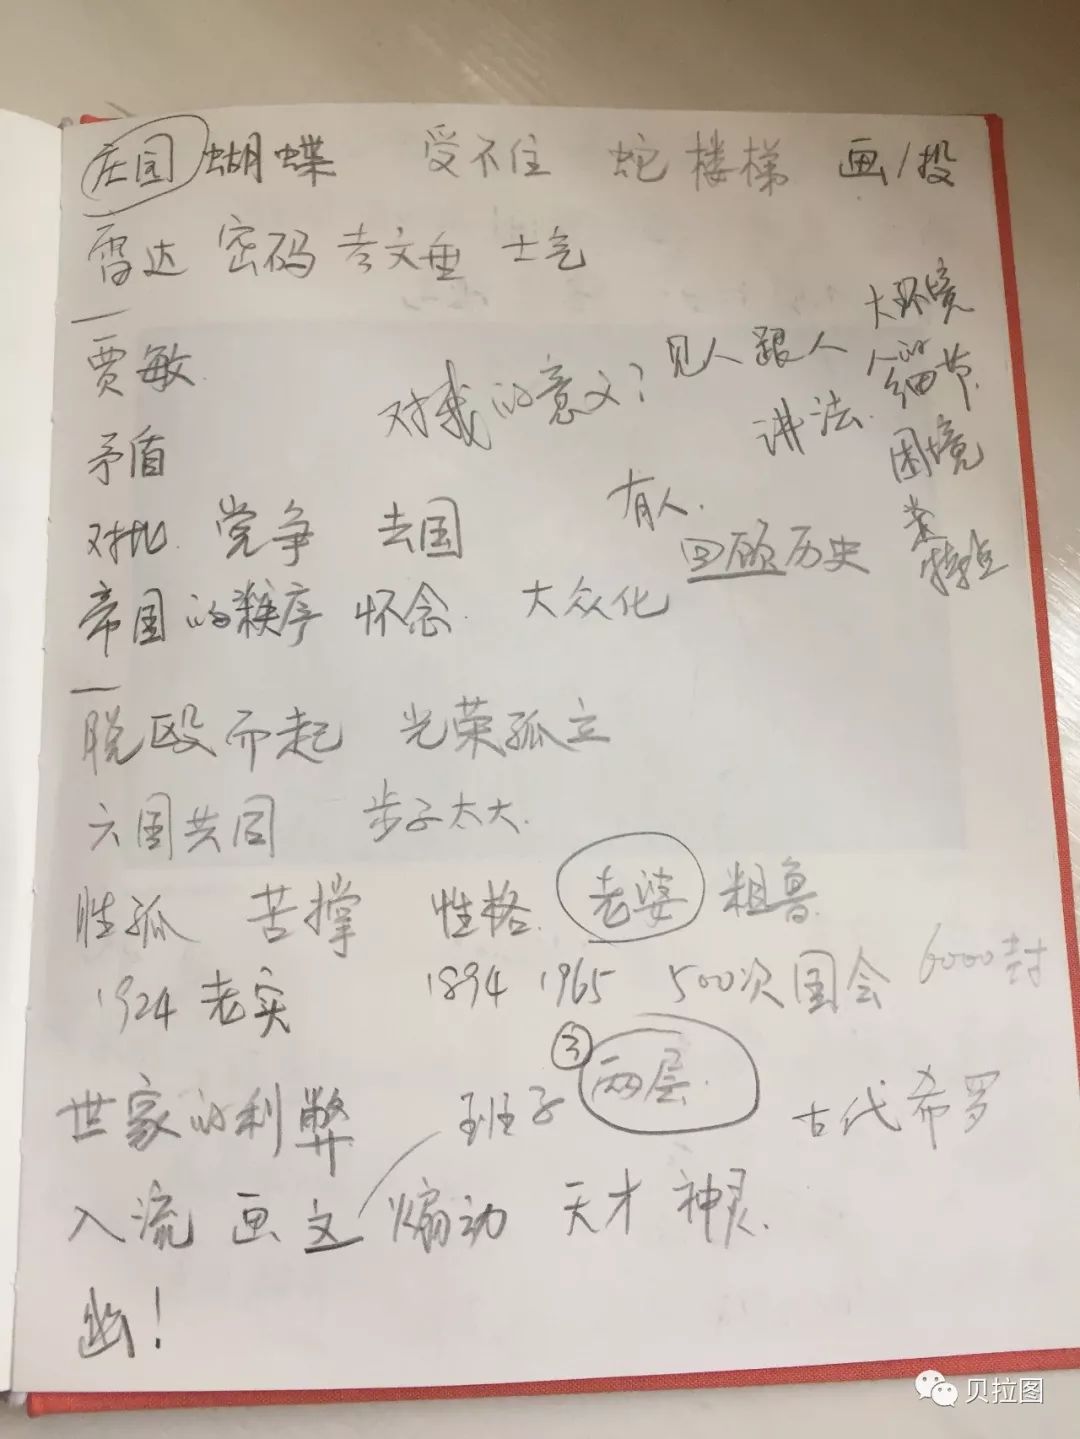 庄园 蝴蝶 受不住 蛇 楼梯 画/投
雷达 密码 考文垂 士气
贾敏
对我的意义？
见人跟人
讲法.
大环境
人的
细节.
困境
党
特点
矛盾
有人.
对比 党争 去国
回顾历史
帝国的秩序 怀念. 大众化
脱殴而起 光荣孤立
六国共同 步子太大.
性孤 苦撑 性格. 老婆 粗鲁
1924 老实 1894 1965 500次国会 6000封
世家的利弊 班子 ③ 两层. 古代希罗
入流 画 文 煽动 天才 神灵.
幽！
贝拉图